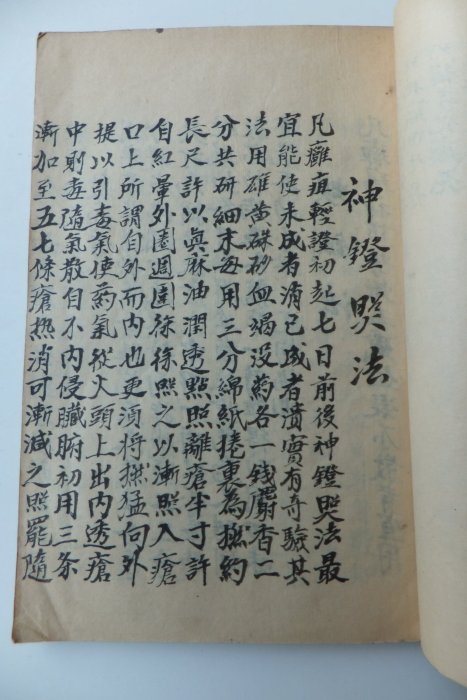 神鐙照法
凡癰疽輕證初起七日前後神鐙照法最
宜能使未成者消已成者潰實有奇驗其
法用雄黃硃砂血竭没药各一錢麝香二
分共研細末每用三分綿紙捲裹為撚約
長尺許以真麻油潤透點照離瘡半寸許
自紅暈外圍週圍徐徐照之以漸照入瘡
口上所謂自外而内也更須將撚猛向外
提以引毒氣使药氣從火頭上出内透瘡
中則毒隨氣散自不内侵臟腑初用三条
漸加至五七條瘡热消可漸減之照罷隨